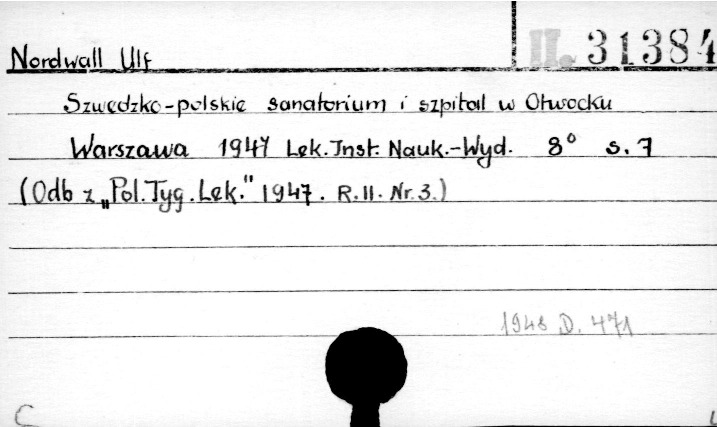 II. 31384
Nordwall Ulf
Szwedzko-polskie sanatorium i szpital w Otwocku
Warszawa 1947 Lek. Inst. Nauk.-Wyd. 8° s. 7
(Odb z „Pol. Tyg. Lek." 1947. R. II. Nr. 3.)
1948 D. 471
C